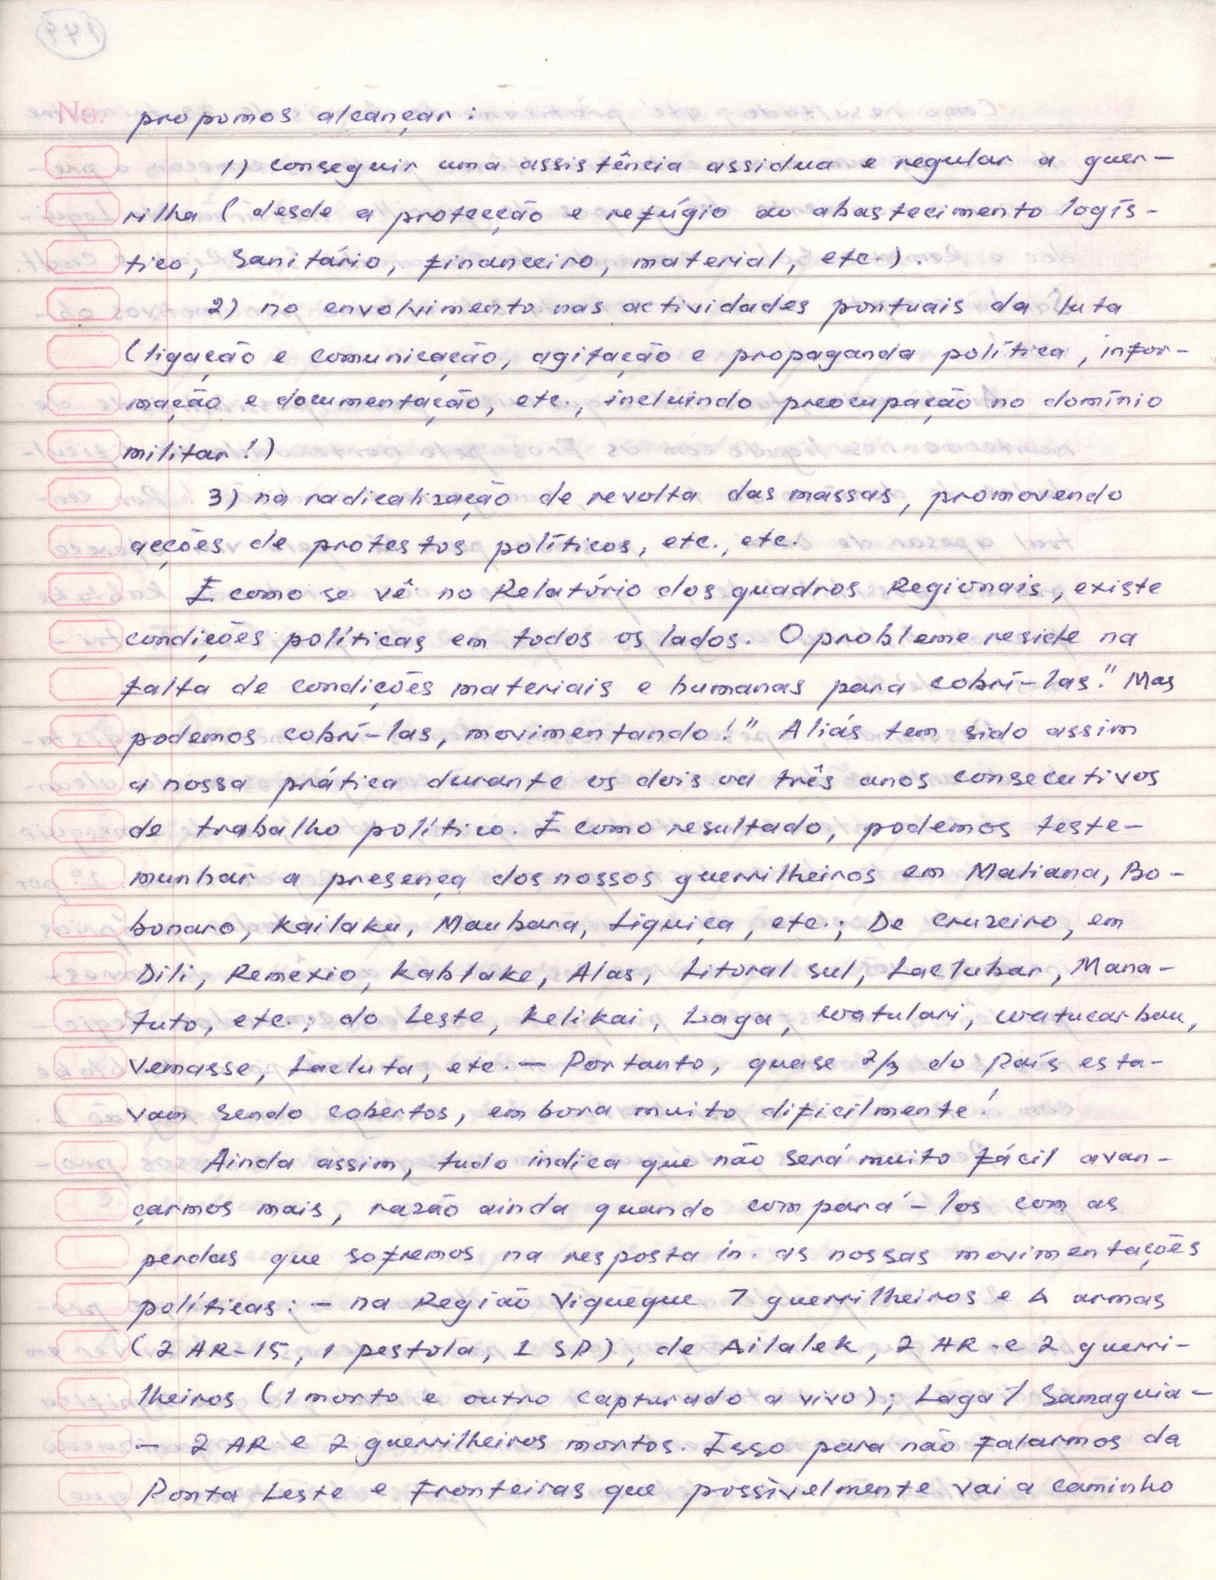 propomos alcançar:
1) conseguir uma assistência assidua e regular a guer-
rilha (desde a protecção e refúgio ao abastecimento logís-
tico, Sanitário, financeiro, material, etc.).
2) no envolvimento nas actividades pontuais da luta
(ligação e comunicação, agitação e propaganda política, infor-
mação e documentação, etc., incluindo preocupação no domínio
militar!)
3) na radicalização de revolta das massas, promovendo
acções de protestos políticos, etc., etc.
E como se vê no Relatório dos quadros Regionais, existe
condições políticas em todos os lados. O probleme reside na
falta de condições materiais e humanas para cobrí-las." Mas
podemos cobrí-las, movimentando!" Aliás tem sido assim
a nossa prática durante os dois ou três anos consecutivos
de trabalho político. E como resultado, podemos teste-
munhar a presença dos nossos guerrilheiros em Maliana, Bo-
bonaro, Kailaku, Maubara, Liquiça, etc.; De Cruzeiro, em
Dili, Remèxio, Kablake, Alas, Litoral sul, Laclubar, Mana-
tuto, etc.; do Leste, Kelikai, Laga, Watulari, Watucarbau,
Vemasse, Lacluta, etc. — Portanto, quase 2/3 do País esta-
vam sendo cobertos, embora muito dificilmente!
Ainda assim, tudo indica que não será muito fácil avan-
çarmos mais, razão ainda quando compará-los com as
perdas que sofremos na resposta in. as nossas movimentações
políticas: - na Região Viqueque 7 guerrilheiros e 4 armas
(2 AR-15, 1 pestola, 1 SP), de Ailalek, 2 AR e 2 guerri-
lheiros (1 morto e outro capturado a vivo); Laga/Samaguia-
- 2 AR e 2 guerrilheiros mortos. Isso para não falarmos da
Ponta Leste e Fronteiras que possìvelmente vai a caminho